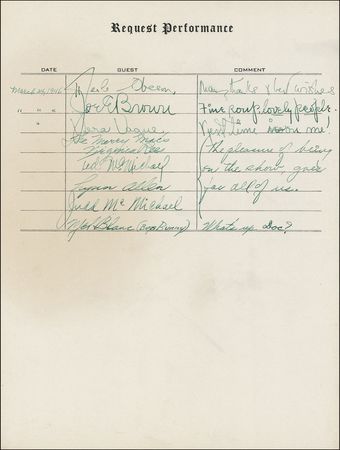 Request Performance
DATE GUEST COMMENT
March 24, 1946 Merle Oberon Many thanks & best wishes
" " " Joe E Brown Fine soup, lovely people.
" Vera Vague Next time it's on me!
The Merry Macs The pleasure of being
Virginia Rees on the show, goes
Ted McMichael for all of us.
Lynn Allen
Judd McMichael
Mel Blanc (Bugs Bunny) What's up Doc?